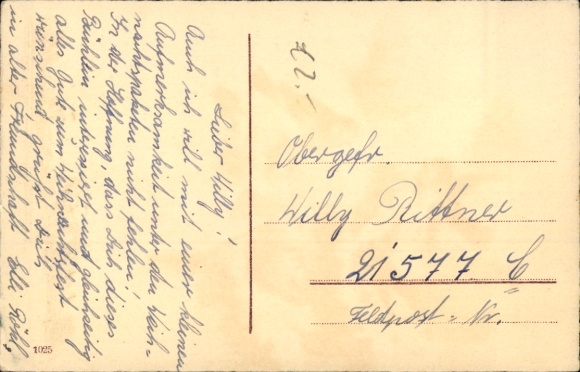 Lieber Willy!
Auch ich will mit einer kleinen
Aufmerksamkeit unter den Weih-
nachtspaketen nicht fehlen!
In der Hoffnung, dass Dich dieses
Büchlein interessiert und gleichzeitig
alles Gute zum Weihnachtsfest
wünschend grüßt Dich
in alter Freundschaft Elli
Obergefr.
Willy Rittner
21577 C
Feldpost = Nr.
1025